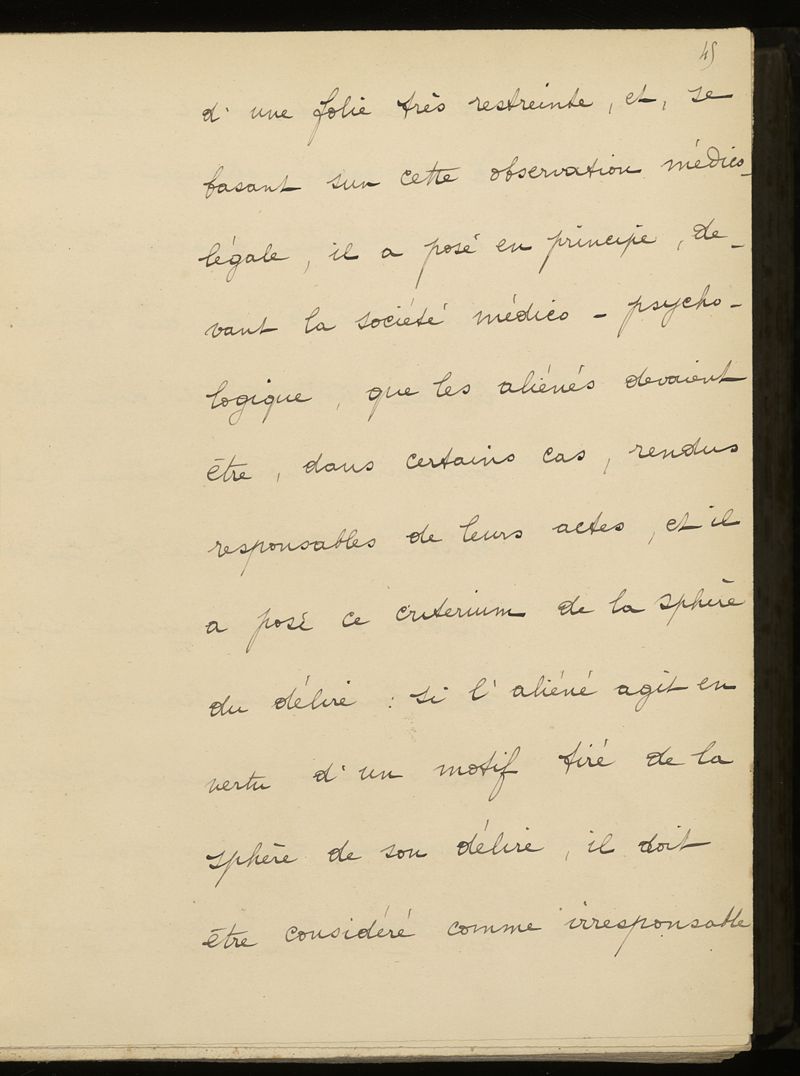 45
d'une folie très restreinte, et, se
basant sur cette observation médico-
légale, il a posé en principe, de-
vant la société médico-psycho-
logique, que les aliénés devaient
être, dans certains cas, rendus
responsables de leurs actes, et il
a posé ce criterium de la sphère
du délire : si l'aliéné agit en
vertu d'un motif tiré de la
sphère de son délire, il doit
être considéré comme irresponsable